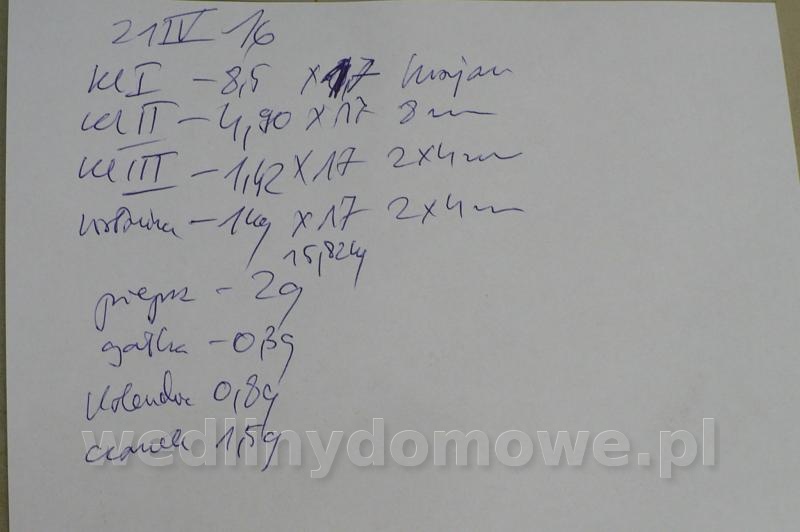 21 IV 16
kl I – 8,5 x 17 krajan
kl II – 4,90 x 17 8 m
kl III – 1,42 x 17 2x4 m
wołowina – 1kg x 17 2x4 m
15,82kg
pieprz – 2g
gałka – 0,3g
Kolendra 0,8g
czosnek 1,5g
wedlinydomowe.pl